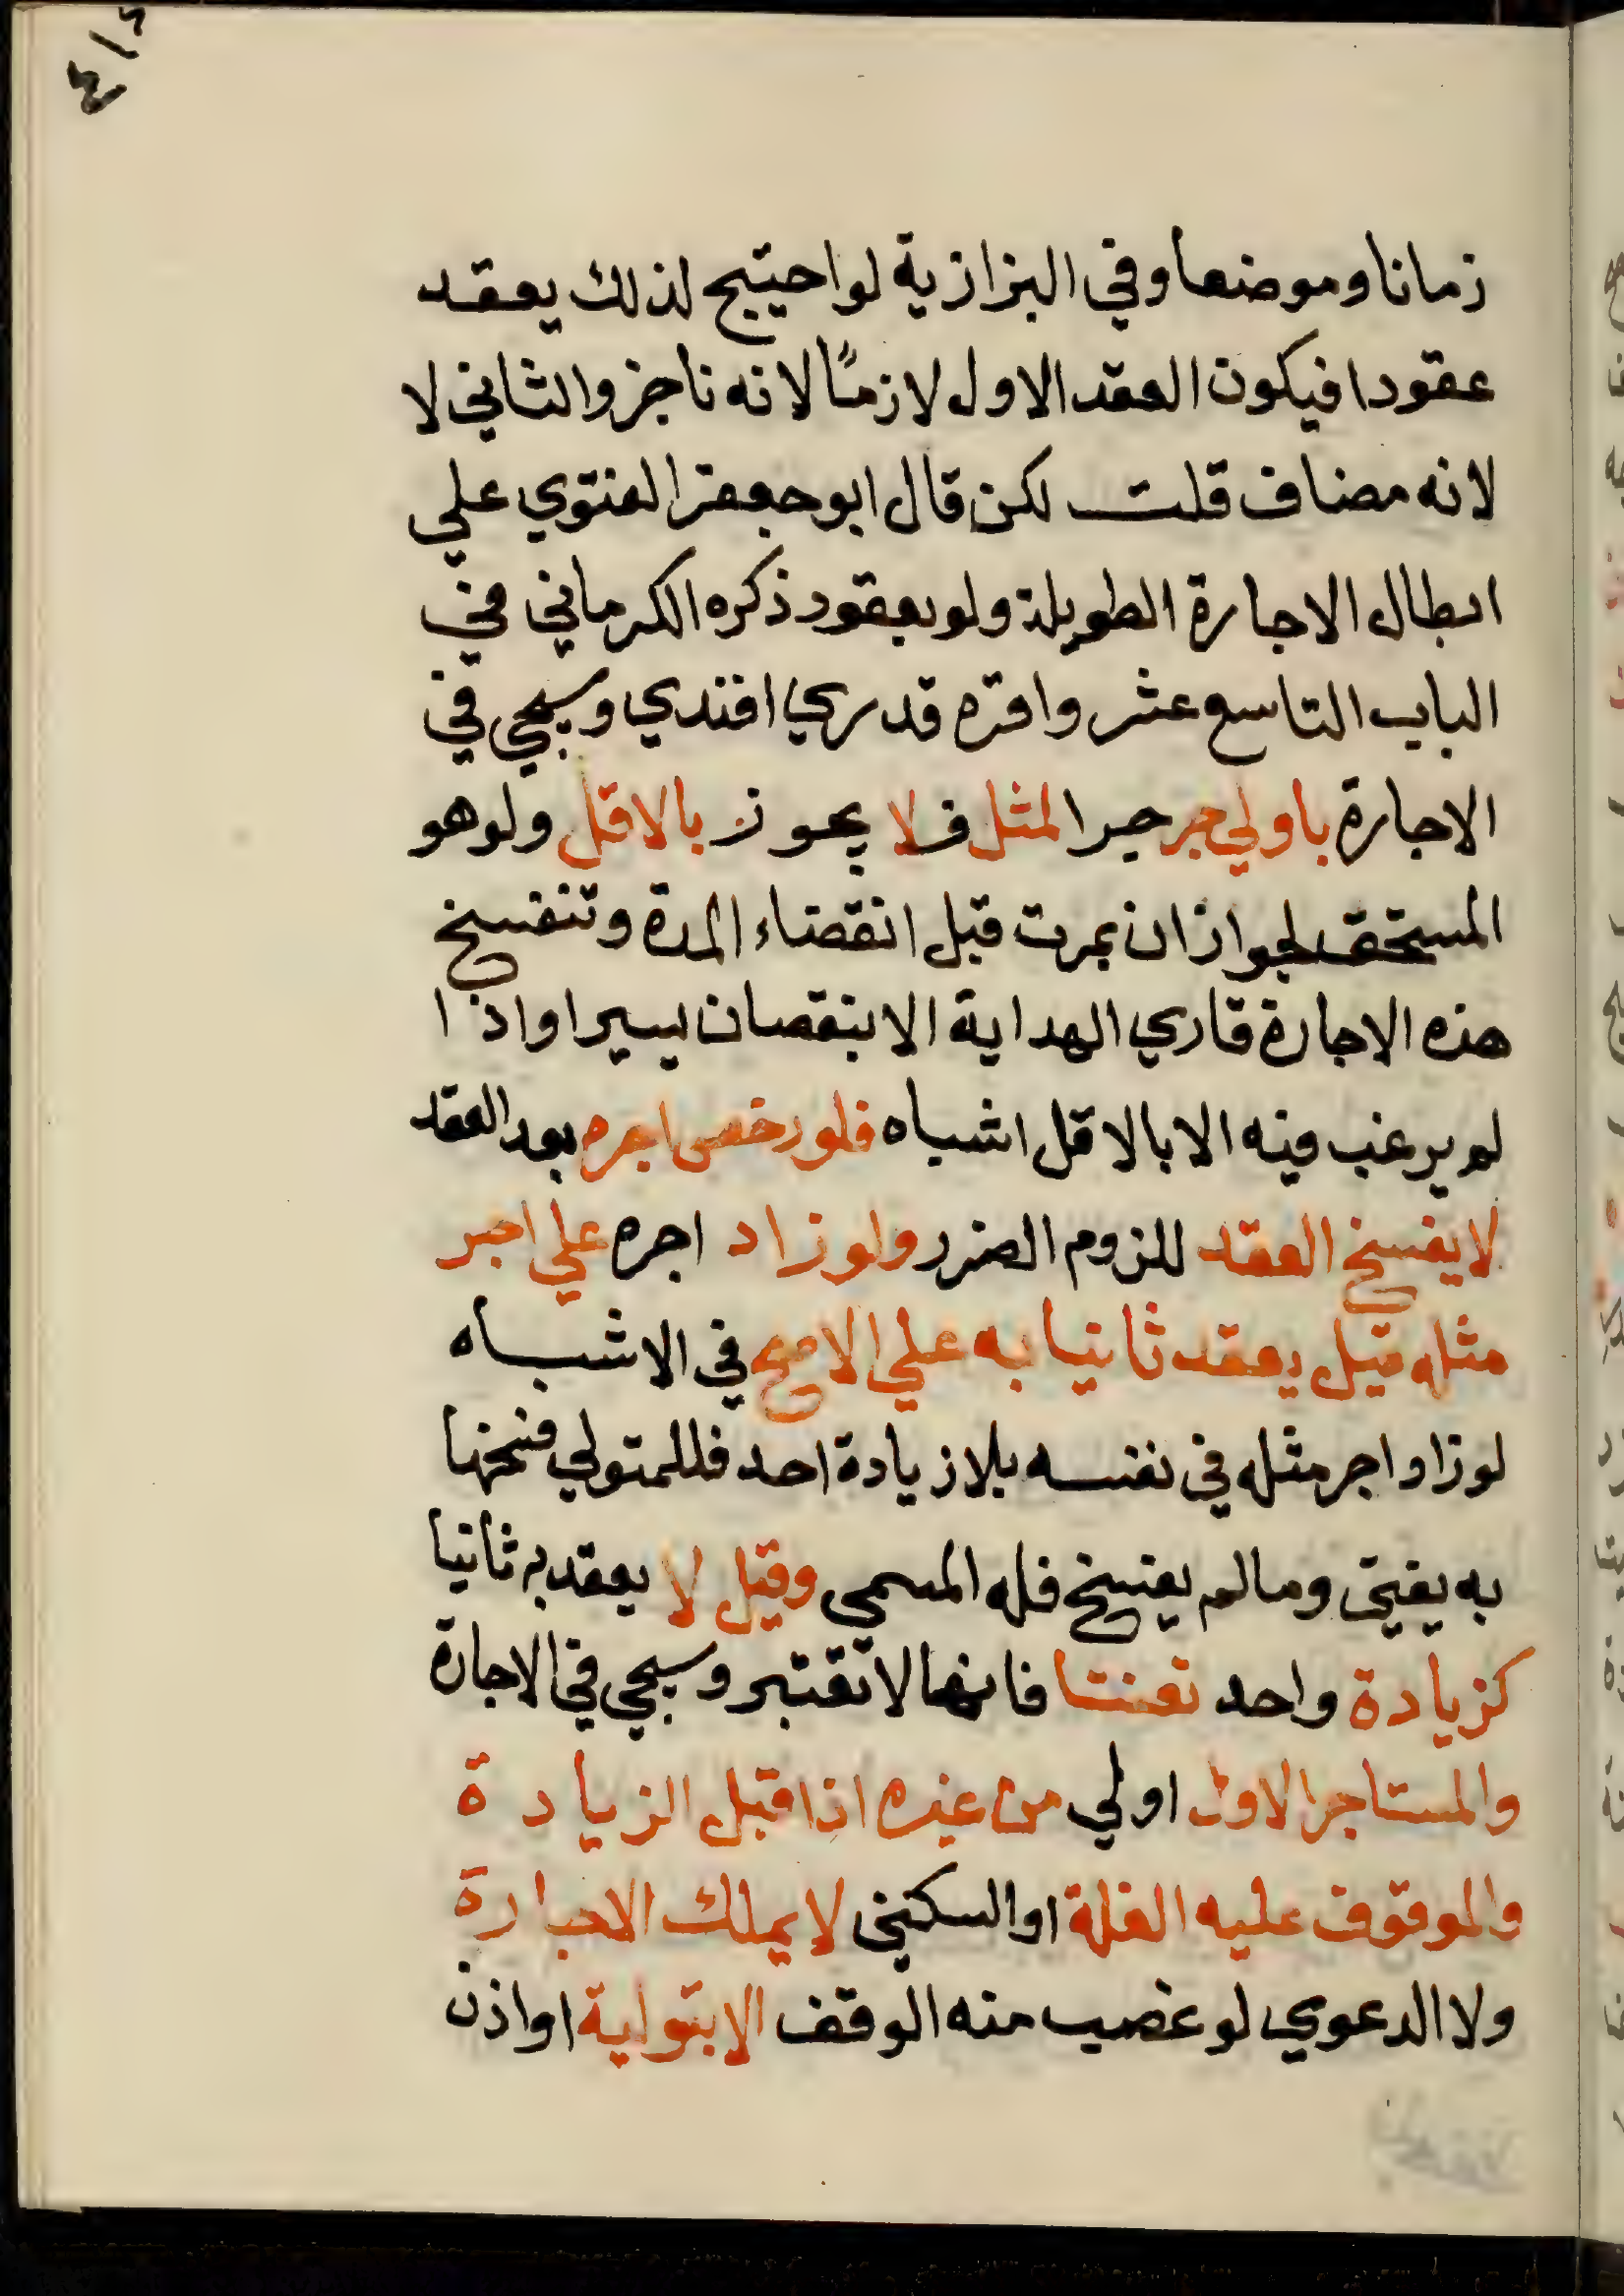 زمانا وموضعا وفي البزازية لو احتيج لذلك يعقد
عقودا فيكون العقد الاول لازمًا لانه ناجز والثاني لا
لانه مضاف قلت لكن قال ابو جعفر الفتوي علي
ابطال الاجارة الطويلة ولو بعقود ذكره الكرماني في
الباب التاسع عشر واقره قدري افندي وسيجي في
الاجارة المثل فلا يجوز بالاقل ولو هو
المستحق لجواز ان يمرت قبل انقضاء المدة وتنفسخ
هذه الاجارة قاري الهداية الا بنقصان يسير او اذا
لم يرغب فيه الا بالاقل اشباه فلو رخص اجره بعد العقد
لا يفسخ العقد للزوم الضرر ولو زاد اجره علي اجر
مثله قيل يعقد ثانيا به علي الاصح في الاشباه
لو زاد اجر مثله في نفسه بلا زيادة احد فللمتولي فسخها
به يفتي وما لم يفسخ فله المسمي وقيل لا يعقد به ثانيا
كزيادة واحد تعنتا فانها لا تعتبر وسيجي في الاجارة
والمستاجر الاول اولي من غيره اذا قبل الزيادة
والموقوف عليه الغلة او السكني لا يملك الاجارة
ولا الدعوي لو غصب منه الوقف الا بتولية او اذن